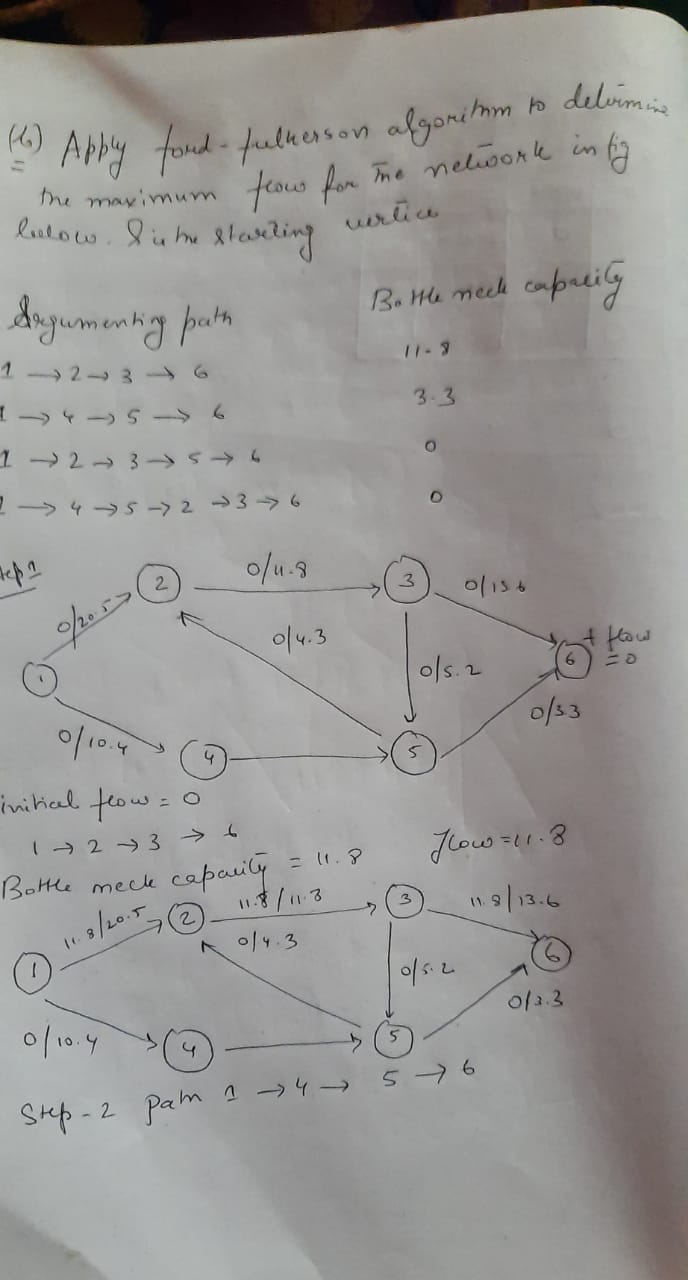 (6) Apply ford-fulkerson algorithm to determine
the maximum flow for the network in fig
below. S is the starting vertice
Argumenting path Bottle neck capacity
1 → 2 → 3 → 6 11.8
1 → 4 → 5 → 6 3.3
1 → 2 → 3 → 5 → 6 0
1 → 4 → 5 → 2 → 3 → 6 0
step 1
0/20.5 2 0/11.8 3 0/13.6
1 0/4.3 0/5.2 6 + flow
= 0
0/10.4 4 5 0/3.3
initial flow = 0
1 → 2 → 3 → 6
Bottle neck capacity = 11.8 flow = 11.8
11.8/20.5 2 11.8/11.8 3 11.8/13.6
1 0/4.3 0/5.2 6
0/10.4 4 5 0/3.3
Step - 2 path 1 → 4 → 5 → 6